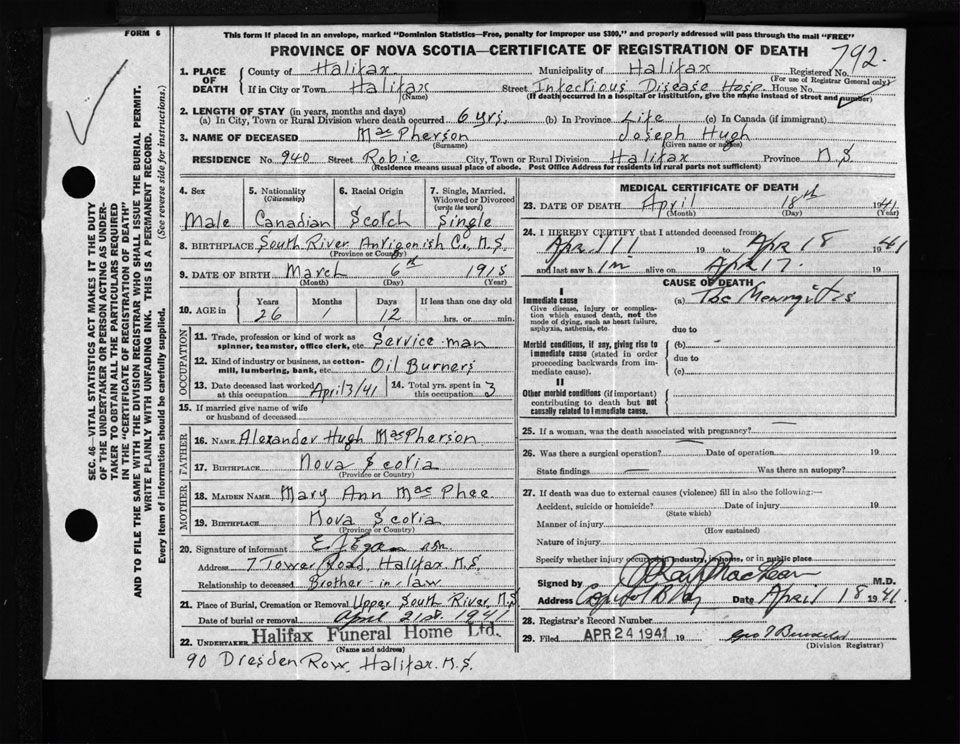 FORM 6
This form if placed in an envelope, marked "Dominion Statistics—Free, penalty for improper use $300," and properly addressed will pass through the mail "FREE"
PROVINCE OF NOVA SCOTIA—CERTIFICATE OF REGISTRATION OF DEATH
792.
1. PLACE OF DEATH
County of Halifax Municipality of Halifax Registered No.
(For use of Registrar General only)
If in City or Town Halifax Street Infectious Disease Hosp. House No.
(Name) (If death occurred in a hospital or institution, give the name instead of street and number)
2. LENGTH OF STAY (in years, months and days)
(a) In City, Town or Rural Division where death occurred 6 yrs. (b) In Province Life (c) In Canada (if immigrant)
3. NAME OF DECEASED MacPherson Joseph Hugh
(Surname) (Given name or names)
RESIDENCE No. 940 Street Robie City, Town or Rural Division Halifax Province N.S.
(Residence means usual place of abode. Post Office Address for residents in rural parts not sufficient)
4. Sex 5. Nationality (Citizenship) 6. Racial Origin 7. Single, Married, Widowed or Divorced (write the word)
Male Canadian Scotch Single
8. BIRTHPLACE South River Antigonish Co., N.S.
(Province or Country)
9. DATE OF BIRTH March 6th 1915
(Month) (Day) (Year)
10. AGE in Years Months Days If less than one day old
26 1 12 hrs. or min.
OCCUPATION
11. Trade, profession or kind of work as spinner, teamster, office clerk, etc. Service-man
12. Kind of industry or business, as cotton-mill, lumbering, bank, etc. Oil Burners
13. Date deceased last worked at this occupation April 3/41 14. Total yrs. spent in this occupation 3
15. If married give name of wife or husband of deceased
FATHER
16. NAME Alexander Hugh MacPherson
17. BIRTHPLACE Nova Scotia
(Province or Country)
MOTHER
18. MAIDEN NAME Mary Ann MacPhee
19. BIRTHPLACE Nova Scotia
(Province or Country)
20. Signature of informant E J Egan
Address 7 Tower Road, Halifax. N.S.
Relationship to deceased Brother-in-law
21. Place of Burial, Cremation or Removal Upper South River, N.S
Date of burial or removal April 21st 1941
22. UNDERTAKER Halifax Funeral Home Ltd.
(Name and address)
90 Dresden Row, Halifax. N.S.
MEDICAL CERTIFICATE OF DEATH
23. DATE OF DEATH April 18th 1941
(Month) (Day) (Year)
24. I HEREBY CERTIFY that I attended deceased from
April 11 19 to Apr 18 1941
and last saw him alive on Apr 17. 19
CAUSE OF DEATH
I
Immediate cause (a) Tbc Meningitis
Give disease, injury or complication which caused death, not the mode of dying, such as heart failure, asphyxia, asthenia, etc.
due to
Morbid conditions, if any, giving rise to immediate cause (stated in order proceeding backwards from immediate cause).
(b)
due to
(c)
II
Other morbid conditions (if important) contributing to death but not causally related to immediate cause.
25. If a woman, was the death associated with pregnancy?
26. Was there a surgical operation? Date of operation 19
State findings Was there an autopsy?
27. If death was due to external causes (violence) fill in also the following:—
Accident, suicide or homicide? Date of injury 19
(State which)
Manner of injury
(How sustained)
Nature of injury
Specify whether injury occurred in industry, in home, or in public place
Signed by MacLean M.D.
Address Capitol Bldg Date April 18 1941.
28. Registrar's Record Number
29. Filed APR 24 1941 19
(Division Registrar)
SEC. 46—VITAL STATISTICS ACT MAKES IT THE DUTY
OF THE UNDERTAKER OR PERSON ACTING AS UNDER-
TAKER TO OBTAIN ALL THE PARTICULARS REQUIRED
IN THE "CERTIFICATE OF REGISTRATION OF DEATH"
AND TO FILE THE SAME WITH THE DIVISION REGISTRAR WHO SHALL ISSUE THE BURIAL PERMIT.
WRITE PLAINLY WITH UNFADING INK. THIS IS A PERMANENT RECORD.
Every item of information should be carefully supplied. (See reverse side for instructions.)